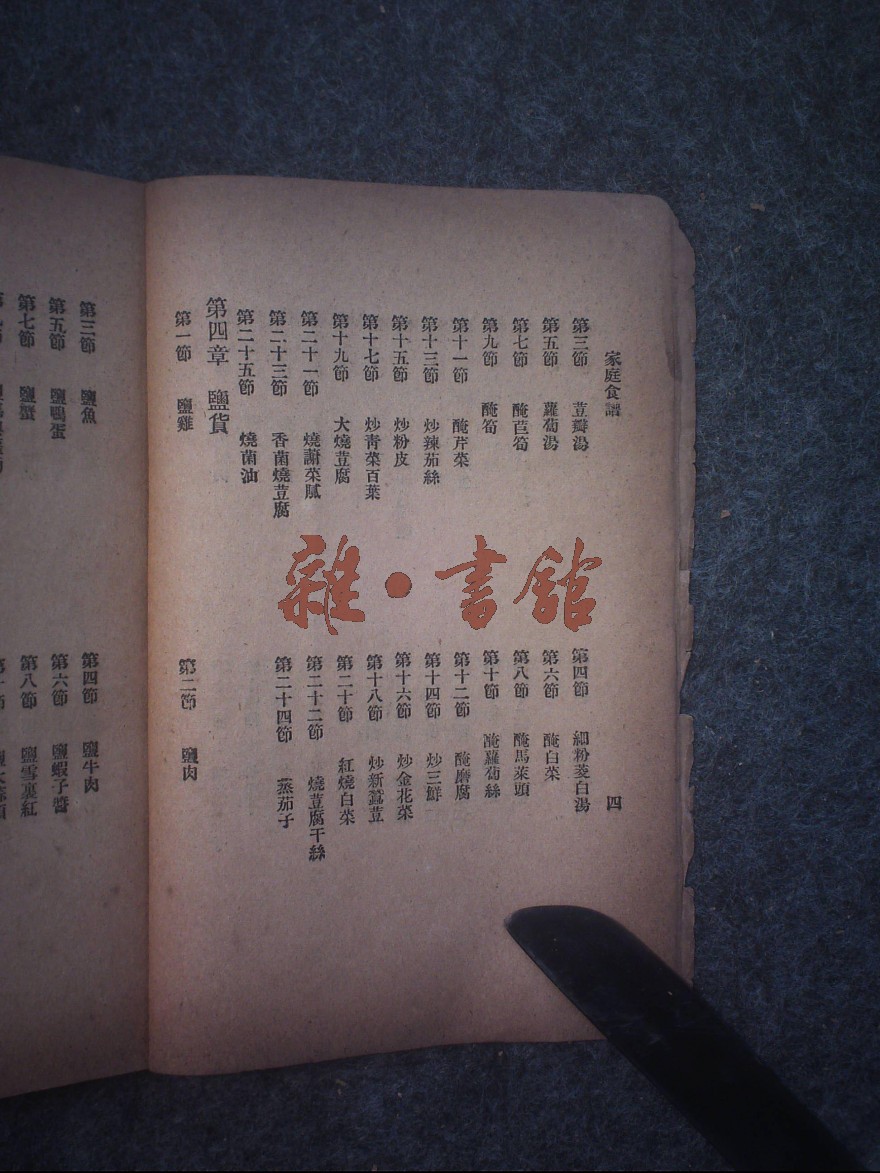 家庭食譜
四
第三節 荳瓣湯
第四節 細粉茭白湯
第五節 蘿蔔湯
第六節 醃白菜
第七節 醃萵筍
第八節 醃馬萊頭
第九節 醃筍
第十節 醃蘿蔔絲
第十一節 醃芹菜
第十二節 醃磨腐
第十三節 炒辣茄絲
第十四節 炒三鮮
第十五節 炒粉皮
第十六節 炒金花菜
第十七節 炒青菜百葉
第十八節 炒新蠶荳
第十九節 大燒荳腐
第二十節 紅燒白菜
第二十一節 燒謝菜膩
第二十二節 燒荳腐干絲
第二十三節 香菌燒荳腐
第二十四節 蒸茄子
第二十五節 燒菌油
第四章 鹽貨
第一節 鹽雞
第二節 鹽肉
第三節 鹽魚
第四節 鹽牛肉
第五節 鹽鴨蛋
第六節 鹽蝦子醬
第七節 鹽蟹
第八節 鹽雪裏紅
雜·書館